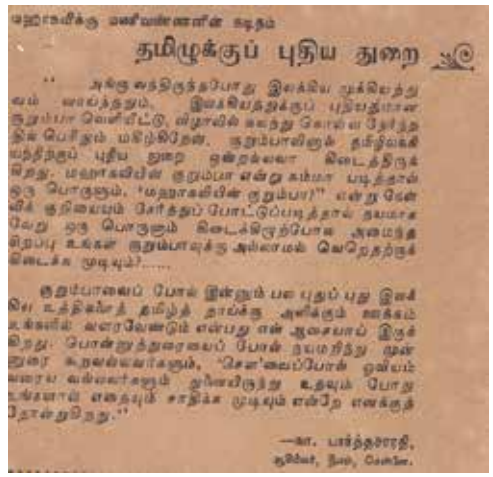 மஹாகவிக்கு மணிவண்ணனின் கடிதம்
தமிழுக்குப் புதிய துறை
" அங்கு வந்திருந்தபோது இலக்கிய முக்கியத்து
வம் வாய்ந்ததும், இலக்கியத்துக்குப் புதியதுமான
குறும்பா வெளியீட்டு விழாவில் கலந்து கொள்ள நேர்ந்த
தில் பெரிதும் மகிழ்கிறேன். குறும்பாவினால் தமிழிலக்கி
யத்திற்குப் புதிய துறை ஒன்றல்லவா கிடைத்திருக்
கிறது. மஹாகவியின் குறும்பா என்று சும்மா படித்தால்
ஒரு பொருளும், 'மஹாகவியின் குறும்பா?' என்று கேள்
விக் குறியையும் சேர்த்துப் போட்டுப்படித்தால் நயமாக
வேறு ஒரு பொருளும் கிடைக்கிறாற்போல அமைந்த
சிறப்பு உங்கள் குறும்பாவுக்கு அல்லாமல் வெறெதற்குக்
கிடைக்க முடியும்?......
குறும்பாவைப் போல் இன்னும் பல புதுப் புது இலக்
கிய உத்திகளைத் தமிழ்த் தாய்க்கு அளிக்கும் ஊக்கம்
உங்களில் வளரவேண்டும் என்பது என் ஆசையாய் இருக்
கிறது. பொன்னுத்துரையைப் போல் நயமறிந்து முன்
னுரை கூறவல்லவர்களும், 'சௌ'வைப்போல் ஓவியம்
வரைய வல்லவர்களும் துணையிருந்து உதவும் போது
உங்களால் எதையும் சாதிக்க முடியும் என்றே எனக்குத்
தோன்றுகிறது."
—நா. பார்த்தசாரதி,
ஆசிரியர், தீபம், சென்னை.